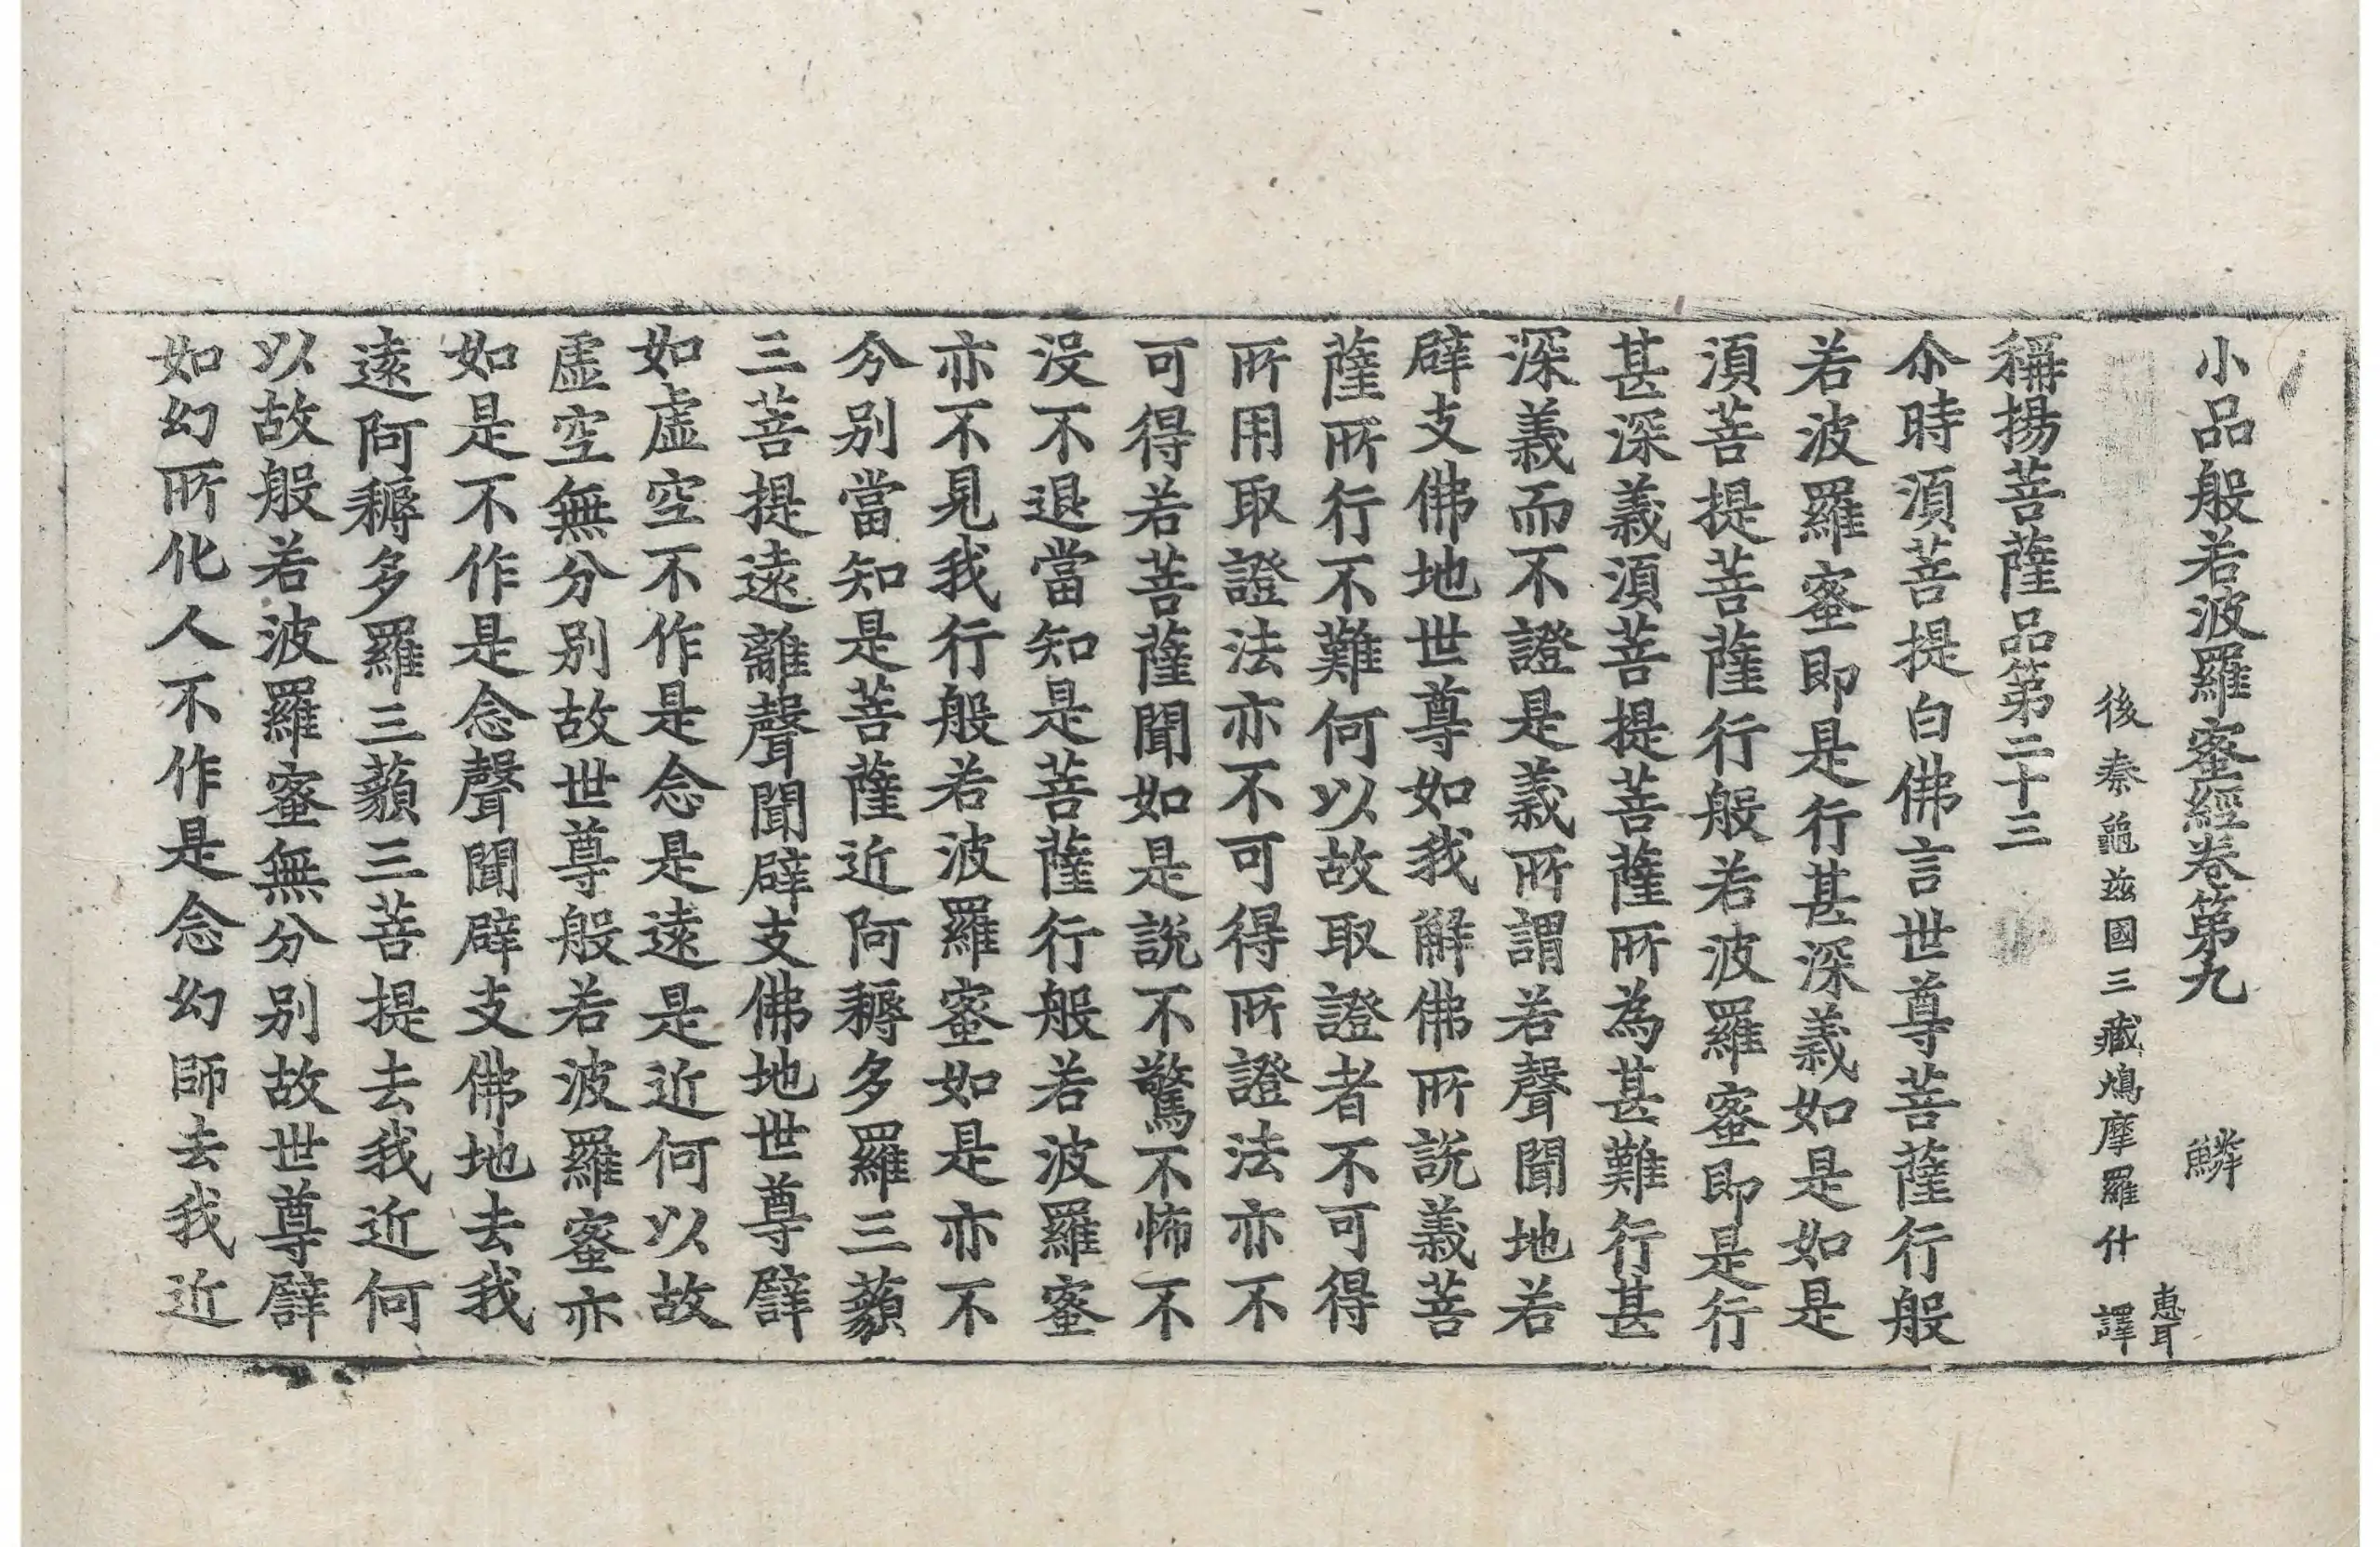 小品般若波羅蜜經卷第九　鱗
後秦龜兹國三藏鳩摩羅什　譯
惠耳
稱揚菩薩品第二十三
尒時湏菩提白佛言世尊菩薩行般
若波羅蜜即是行甚深義如是如是
湏菩提菩薩行般若波羅蜜即是行
甚深義湏菩提菩薩所為甚難行甚
深義而不證是義所謂若聲聞地若
辟支佛地世尊如我解佛所說義菩
薩所行不難何以故取證者不可得
所用取證法亦不可得所證法亦不
可得若菩薩聞如是說不驚不怖不
没不退當知是菩薩行般若波羅蜜
亦不見我行般若波羅蜜如是亦不
分別當知是菩薩近阿耨多羅三藐
三菩提遠離聲聞辟支佛地世尊譬
如虛空不作是念是遠是近何以故
虛空無分別故世尊般若波羅蜜亦
如是不作是念聲聞辟支佛地去我
遠阿耨多羅三藐三菩提去我近何
以故般若波羅蜜無分別故世尊譬
如幻所化人不作是念幻師去我近